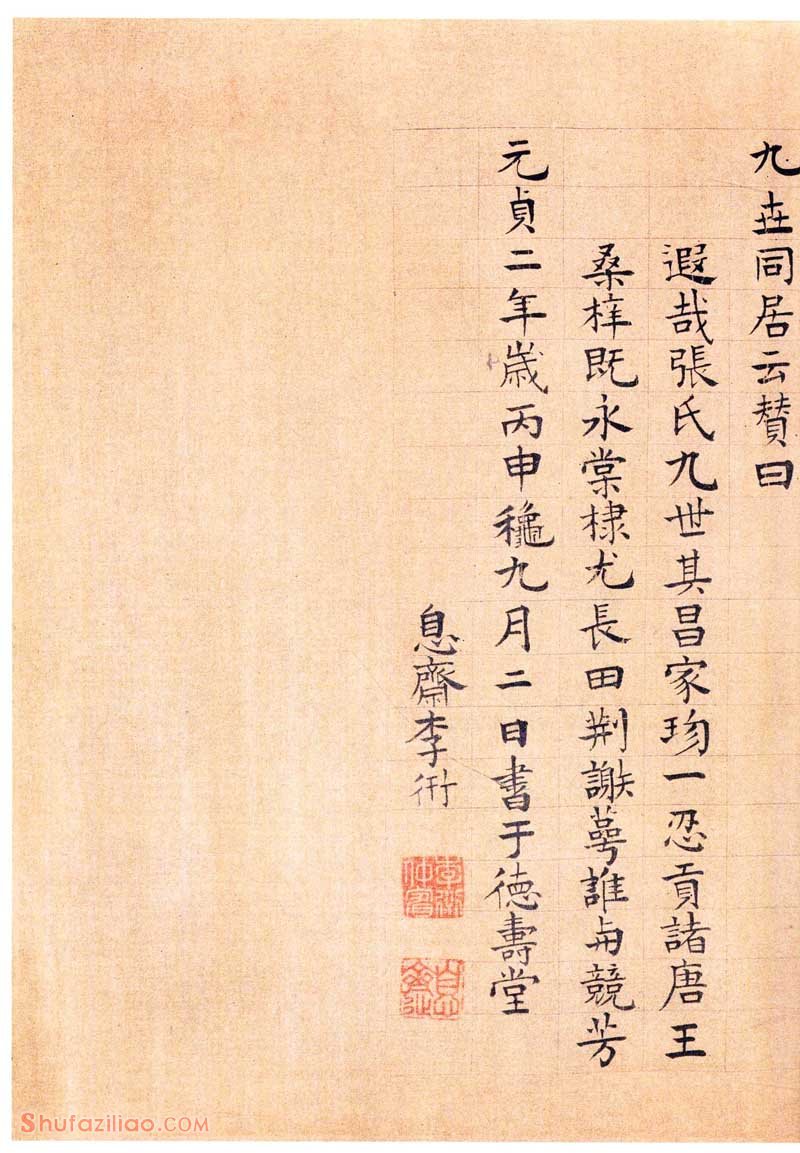 九世同居云賛曰
遐哉張氏九世其昌家珎一忍貢諸唐王
桑梓既永棠棣尤長田荆謝蕚誰與競芳
元貞二年歲丙申龝九月二日書于德壽堂
息齋李衎
Shufaziliao.COM